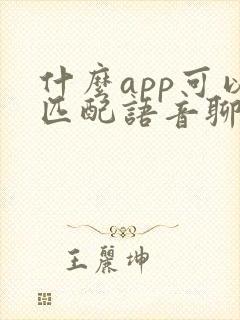 什麼app可以
匹配語音聊
王麗坤